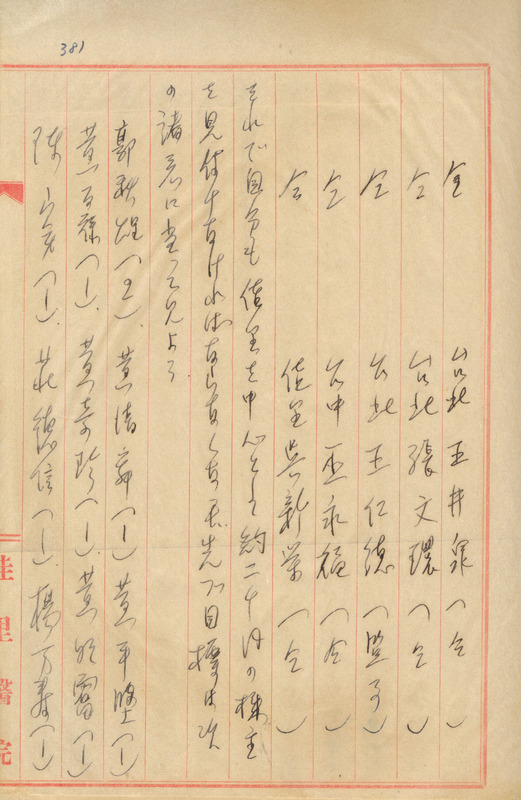 381
仝 台北 王井泉 (仝)
仝 台北 張文環 (仝)
仝 台北 王仁德 (監事)
仝 台中 巫永福 (仝)
仝 佳里 吳新榮 (仝)
それで自分も佳里を中心として約二十身の株主
を見付けなければならなくなる。先づ目標は次
の諸君に当って見よう
郭秋煌(2). 黃清舞(1) 黃平堅(1)
黃百祿(1). 黃奇珍(1). 黃 (1)
陳 (1). 莊德信(1). 楊万壽(1)
佳里醫院